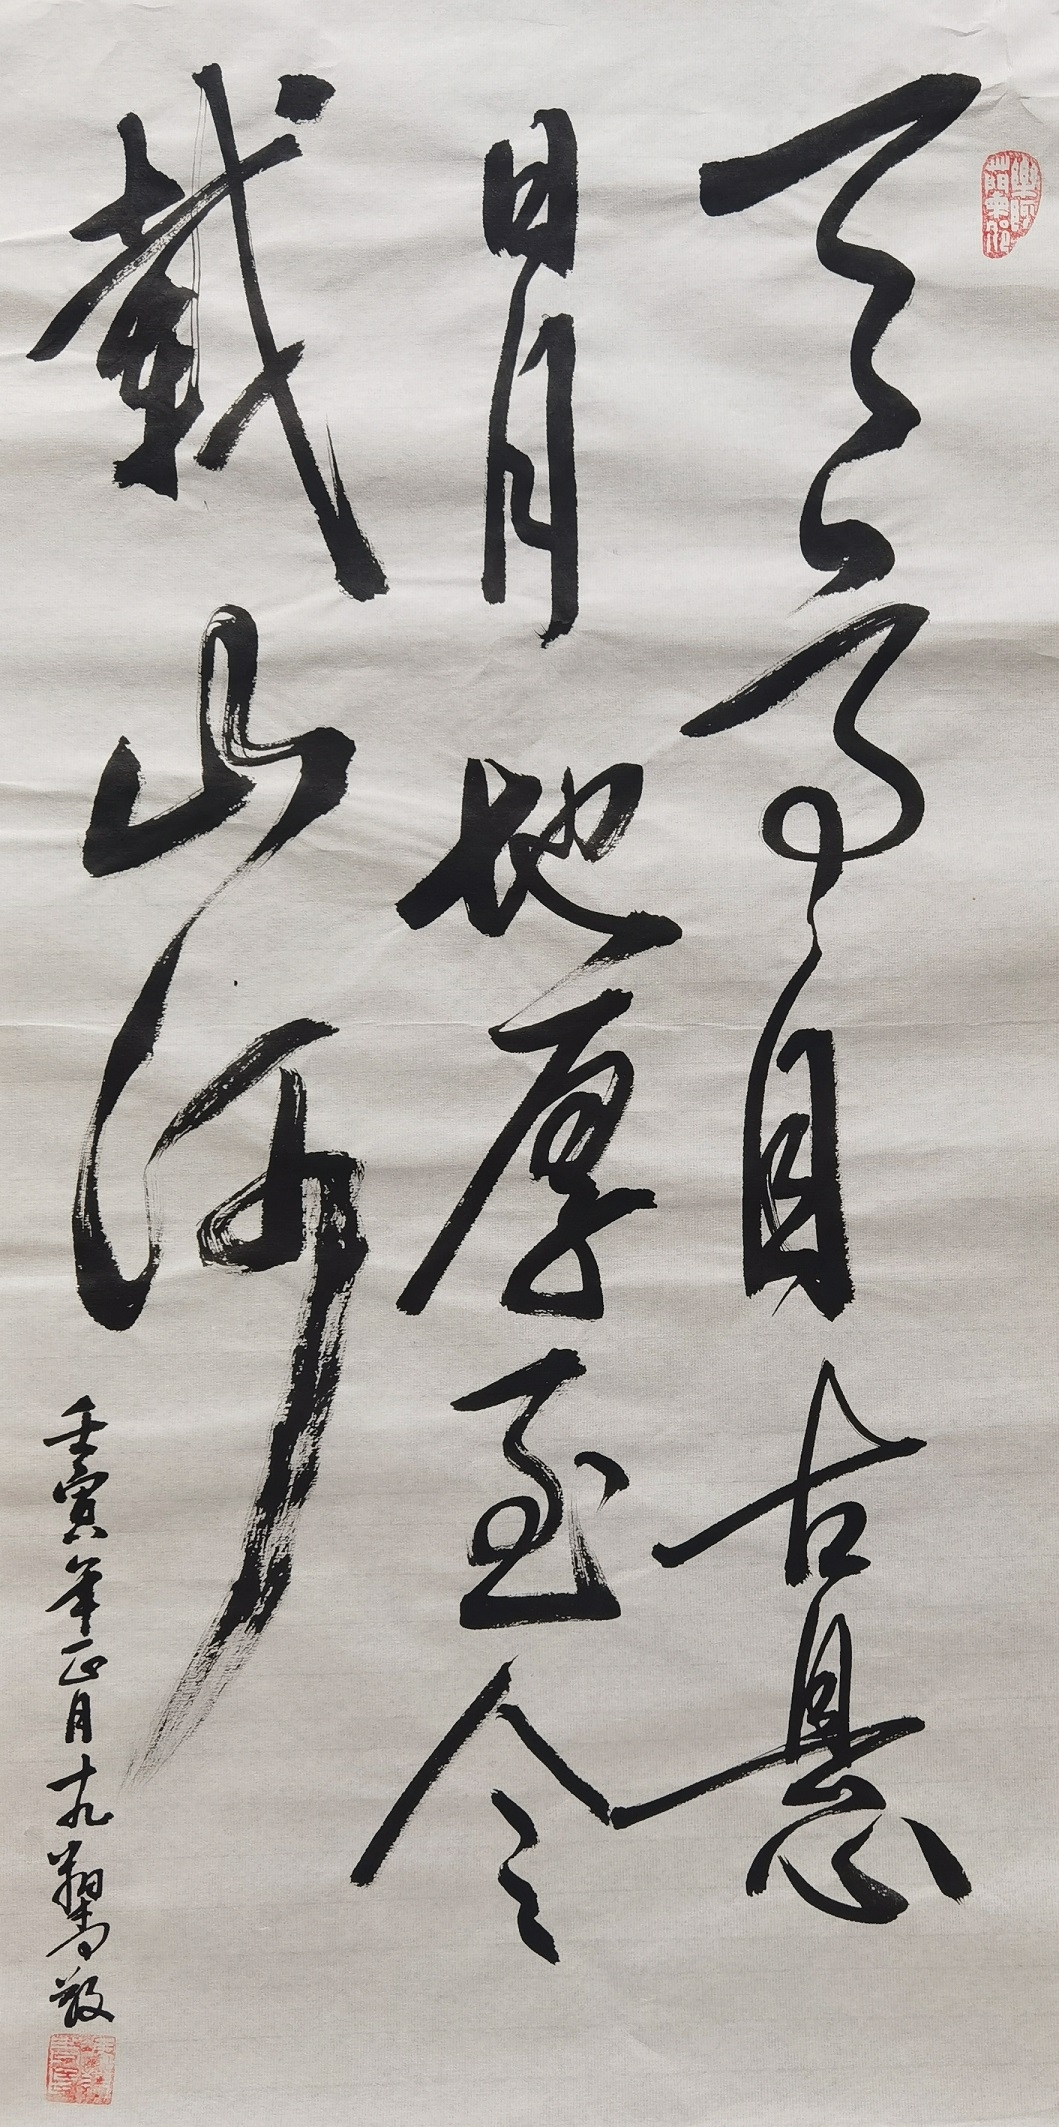 天高自古悬
日月地厚至今
载山河
壬寅年正月十九